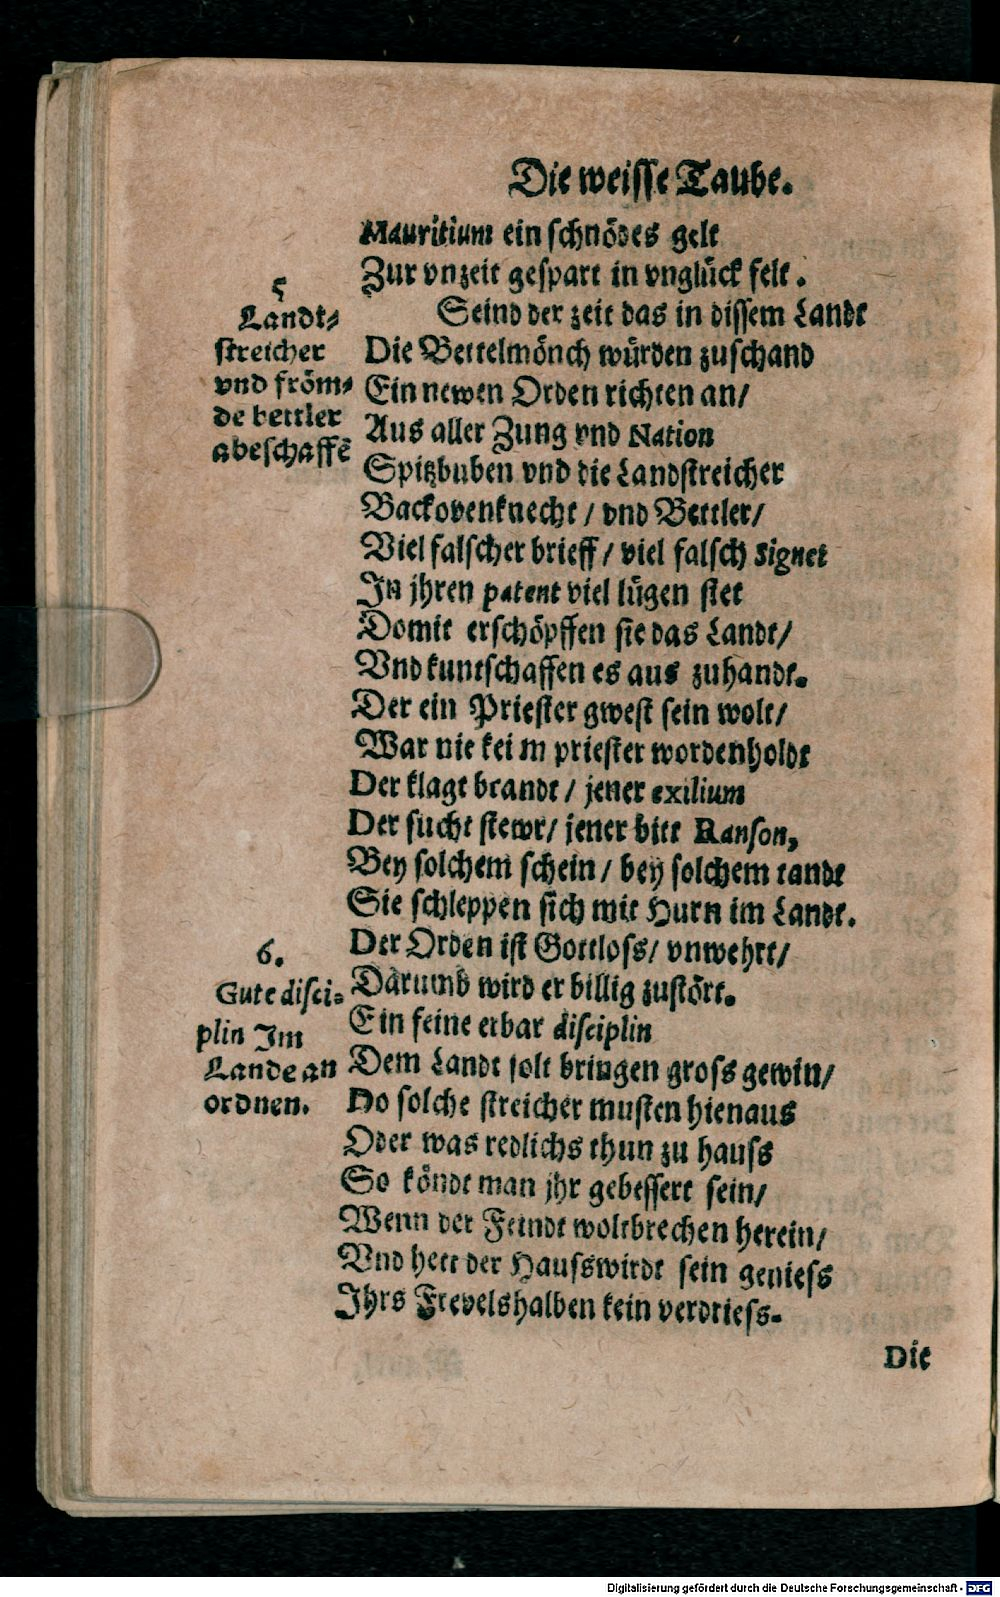 Die weisse Taube.
Mauritium ein schnödes gelt
Zur vnzeit gespart in vnglück felt.
5
Landt-
streicher
vnd fröm-
de bettler
abeschaffē
Seind der zeit das in dissem Landt
Die Bettelmönch würden zuschand
Ein newen Orden richten an/
Aus aller Zung vnd Nation
Spitzbuben vnd die Landstreicher
Backovenknecht / vnd Bettler/
Viel falscher brieff / viel falsch Signet
In jhren patent viel lügen stet
Domit erschöpffen sie das Landt/
Vnd kuntschaffen es aus zuhandt.
Der ein Priester gwest sein wolt/
War nie keim priester wordenholdt
Der klagt brandt / jener exilium
Der sucht stewr/ jener bitt Ranson,
Bey solchem schein / bey solchem tandt
Sie schleppen sich mit Hurn im Landt.
Der Orden ist Gottloss/ vnwehrt/
Darumb wird er billig zustört.
6.
Gute disci-
plin Im
Lande an
ordnen.
Ein feine erbar disciplin
Dem Landt solt bringen gross gewin/
Do solche streicher musten hienaus
Oder was redlichs thun zu hauss
So köndt man jhr gebessert sein/
Wenn der Feindt woltbrechen herein/
Vnd hett der Hausswirdt sein geniess
Ihrs Frevelshalben kein verdriess.
Die
Digitalisierung gefördert durch die Deutsche Forschungsgemeinschaft - DFG